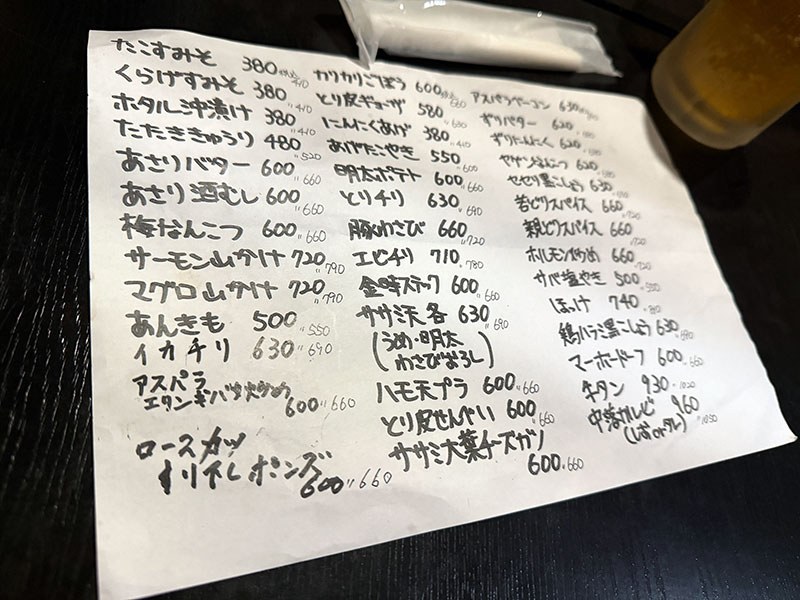 たこすみそ 380 税込410
くらげすみそ 380 〃410
ホタル沖漬け 380 〃410
たたききゅうり 480 〃520
あさりバター 600 〃660
あさり酒むし 600 〃660
梅なんこつ 600 〃660
サーモン山かけ 720 〃790
マグロ山かけ 720 〃790
あんきも 500 〃550
イカチリ 630 〃690
アスパラ
エリンギバター炒め 600 〃660
ロースカツ
すり下しポンズ 600 〃660
カリカリごぼう 600 660
とり皮ギョーザ 580 〃630
にんにくあげ 380 〃410
あげたこやき 550 〃600
明太ポテト 600 〃660
とりチリ 630 〃690
豚わさび 660 〃720
エビチリ 710 〃780
金時スティック 600 〃660
ササミ天各 630 〃690
(うめ・明太
わさびおろし)
ハモ天プラ 600 〃660
とり皮せんべい 600 〃660
ササミ大葉チーズカツ
600 〃660
アスパラベーコン 630
ずりバター 620
ずりにんにく 620
ヤゲンなんこつ 620
セセリ黒こしょう 630
若どりスパイス 660 〃720
親どりスパイス 660 〃720
ホルモン炒め 660 〃720
サバ塩やき 500 〃550
ほっけ 740 〃810
鶏ハラミ黒こしょう 630 〃690
マーボードーフ 600 〃660
牛タン 930 〃1020
中落カルビ 960 〃1050
(しおorタレ)